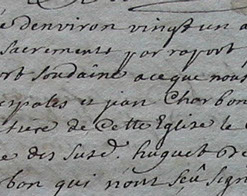 denviron vingt un a
sacrements par raport
ort soudaine a ceque nous
cipales et jean Charbon
ture de cette Eglise le
e des susd. huguet
bon qui n'ont sçeu sign